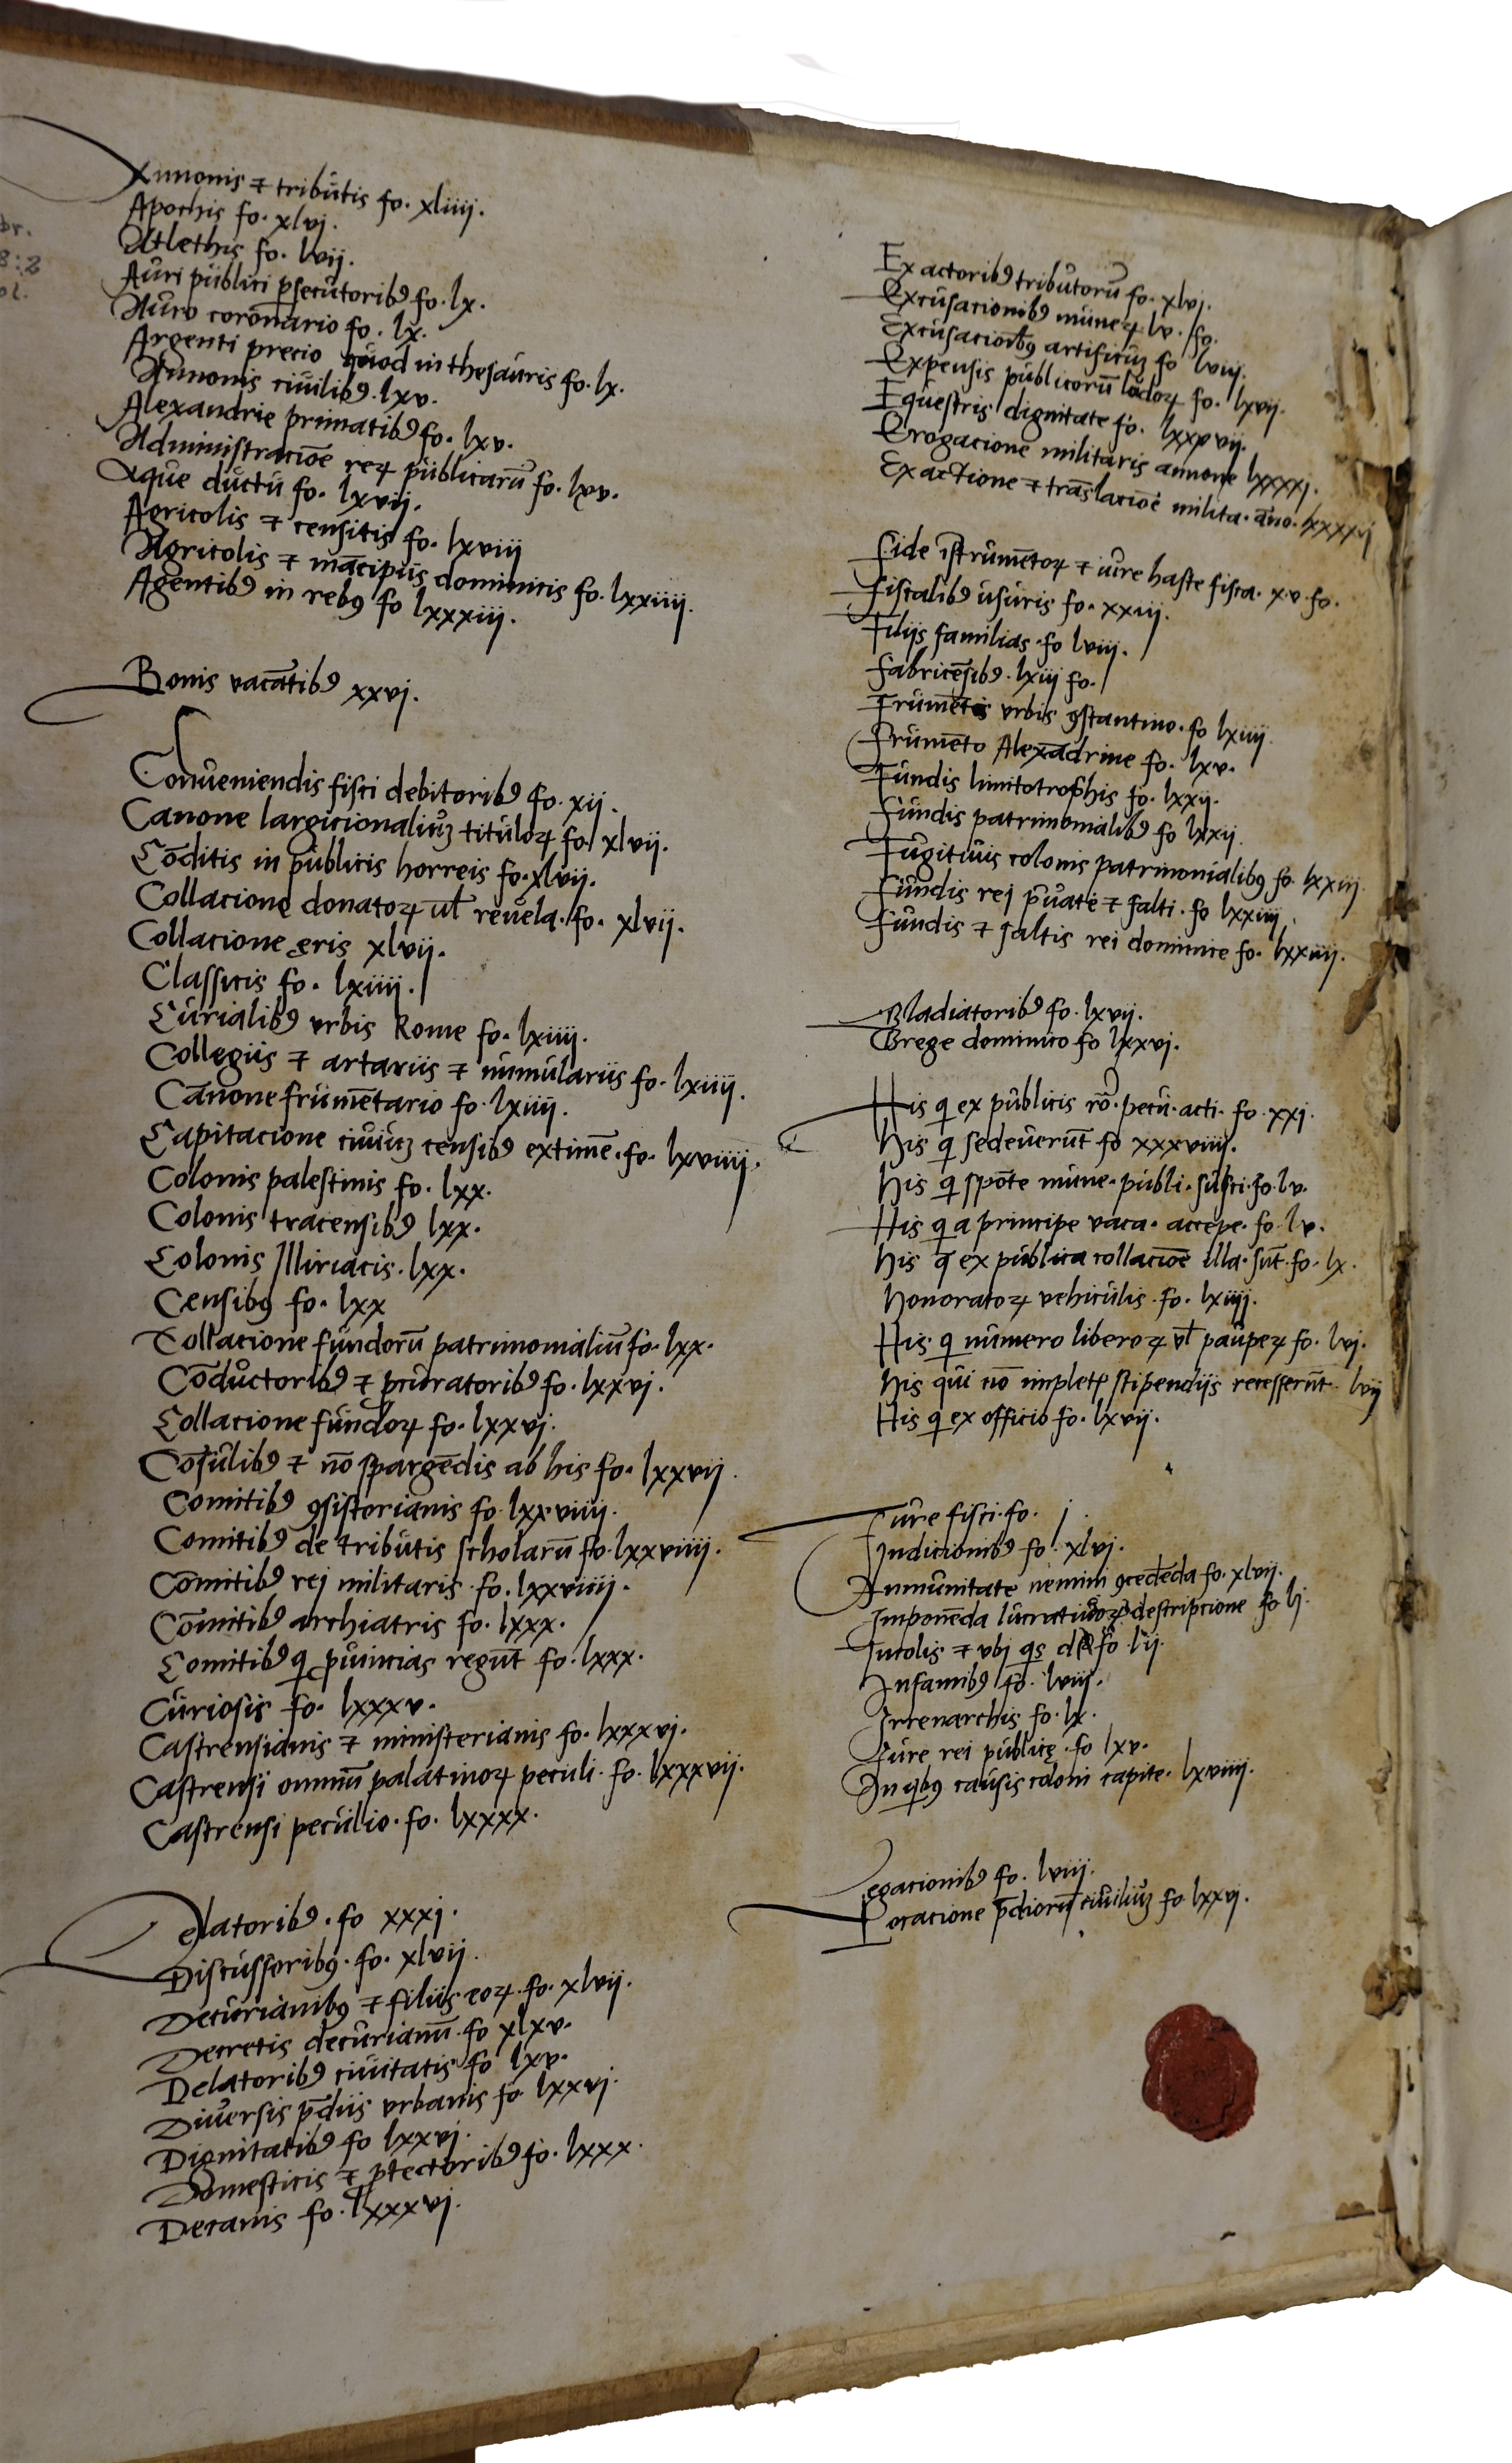 Annonis ⁊ tributis fo. xliiij.
Apochis fo. xlvj.
Atlethis fo. lvij.
Auri publici ꝑsecutoribꝰ fo. lx.
Auro coronario fo. lx.
Argenti precio quod in thesauris fo. lx.
Annonis ciuilibꝰ. lxv.
Alexandrie primatibꝰ fo. lxv.
Administracioē reꝝ publicarū fo. lxv.
Aque ductu fo. lxvij.
Agricolis ⁊ censitis fo. lxviij
Agricolis ⁊ mācipijs dominicis fo. lxxiiij.
Agentibꝰ in rebꝰ fo lxxxiij.
Bonis vacātibꝰ xxvj.
Conueniendis fisci debitoribꝰ fo. xij.
Canone largicionaliuꝫ tituloꝝ fo xlvij.
Cōditis in publicis horreis fo. xlvij.
Collacione donatoꝝ ūl reuela. fo. xlvij.
Collacione ęris xlvij.
Classicis fo. lxiiij.
Curialibꝰ vrbis Rome fo. lxiiij.
Collegiis ⁊ artariis ⁊ numulariis fo. lxiiij.
Canone frumētario fo. lxiiij.
Capitacione ciuiuꝫ censibꝰ extimē. fo. lxviiij.
Colonis palestinis fo. lxx.
Colonis tracensibꝰ lxx.
Colonis Illiriacis. lxx.
Censibꝰ fo. lxx
Collacione fundorū patrimonialiū fo. lxx.
Cōductoribꝰ ⁊ ꝓcuratoribꝰ fo. lxxvj.
Collacione fundoꝝ fo. lxxvj.
Cōsulibꝰ ⁊ nō spargēdis ab his fo. lxxvij.
Comitibꝰ ꝯsistorianis fo. lxxviiij.
Comitibꝰ de tributis scholarū fo. lxxviiij.
Comitibꝰ rei militaris. fo. lxxviiij.
Comitibꝰ archiatris fo. lxxx.
Comitibꝰ q ꝓuincias regūt fo. lxxx.
Curiosis fo. lxxxv.
Castrensianis ⁊ ministerianis fo. lxxxvj.
Castrensi omniū palatinoꝝ peculi. fo. lxxxvij.
Castrensi peculio. fo. lxxxx.
Delatoribꝰ. fo xxxj.
Discussoribꝰ. fo. xlvij.
Decurianibꝰ ⁊ filiis eoꝝ. fo. xlvij.
Decretis decurianū. fo xlxv.
Delatoribꝰ ciuitatis fo lxv.
Diuersis p̄diis vrbanis fo lxxvj.
Dignitatibꝰ fo lxxvj.
Domesticis ⁊ ꝓtectoribꝰ fo. lxxx.
Decanis fo. lxxxvj.
Exactoribꝰ tributorū fo. xlvj.
Excusacionibꝰ muneꝝ lv. fo.
Excusacionibꝰ artificuꝫ fo lviij.
Expensis publicorū ludoꝝ fo. lxvij.
Equestris dignitate fo. lxxxvij.
Erogacione militaris annone lxxxxj.
Exactione ⁊ trāslacioē milita. āno. lxxxxvj
Fide īstrumētoꝝ ⁊ iure haste fisca. xv. fo.
Fiscalibꝰ usuris fo. xxiij.
Filijs familias. fo lviij.
Fabricēsibꝰ. lxiij fo.
Frumētis vrbis ꝯstantino. fo lxiiij
Frumēto Alexādrine fo. lxv.
Fundis limitotrophis fo. lxxij.
Fundis patrimonialibꝰ fo lxxij.
Fugitiuis colonis patrimonialibꝰ fo. lxxiij
Fundis rei p̄uate ⁊ salti. fo lxxiiij.
Fundis ⁊ saltis rei dominice fo. lxxiiij.
Gladiatoribꝰ fo. lxvij.
Grege dominico fo lxxvj.
His q ex publicis rō. pecu. acti. fo. xxj.
His q sedeuerūt fo xxxviiij.
His q spōte mune. publi. susci. fo. lv.
His q a principe vaca. accepe. fo. lv.
His q ex publica collacioē illa. sūt. fo. lx.
Honoratoꝝ vehiculis. fo. lxiiij.
His q numero liberoꝝ ūl paupeꝝ fo. lvj.
His qui nō impletꝭ stipendijs recesserūt. lvij
His q ex officio fo. lxvij.
Iure fisci. fo. j.
Indicionibꝰ fo. xlvj.
Inmunitate nemini ꝯcedēda fo. xlvij.
Imponēda lucratiuoꝝ descripcione fo lj.
Incolis ⁊ vbi qs fo. lij.
Infamibꝰ fo. lviij.
Irrenarchis fo. lx.
Iure rei publicę. fo lxv.
In qibꝰ causis coloni capite. lxviiij.
Legacionibꝰ fo. lviij.
Locacione p̄diorū ciuiliuꝫ fo lxxvj.